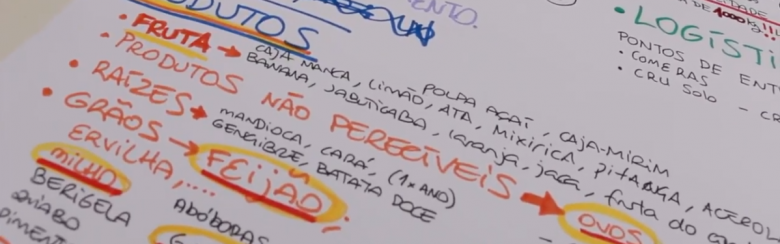 PRODUTOS
• FRUTA → CAJÁ MANGA, LIMÃO, ATA, MIXIRICA, PITANGA, ACEROL
POLPA AÇAÍ, CAJA-MIRIM
BANANA, JABUTICABA, laranja, jaca, fruta do
• PRODUTOS NÃO PERECÍVEIS → OVOS
• RAÍZES → MANDIOCA, CARÁ, (1xANO)
GENGIBRE, BATATA DOCE
• GRÃOS → FEIJÃO;
ERVILHA,....
MILHO
BERIGELA
QUIABO
PIMENT
ABÓBORAS
• LOGÍSTI
PONTOS DE ENT
• COMERAS
• CRU SOLO - CR
DE 1000kg!!!